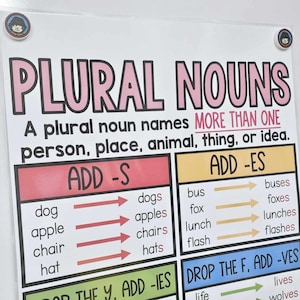 PLURAL NOUNS
A plural noun names MORE THAN ONE
person, place, animal, thing, or idea.
ADD -S
dog dogs
apple apples
chair chairs
hat hats
ADD -ES
bus buses
fox foxes
lunch lunches
flash flashes
DROP THE Y, ADD -IES
DROP THE F, ADD -VES
life lives
wolves